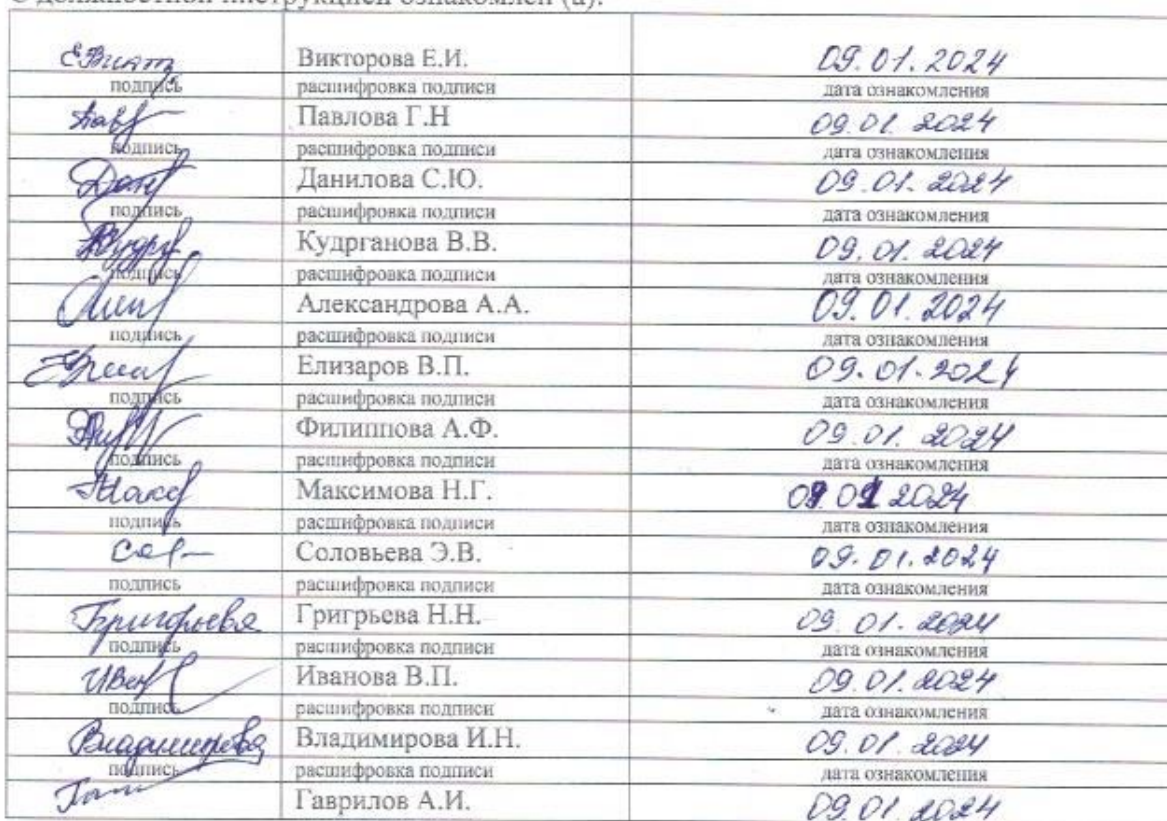 С должностной инструкцией ознакомлен (а):
Викторова Е.И. 09.01.2024
подпись расшифровка подписи дата ознакомления
Павлова Г.Н 09.01.2024
подпись расшифровка подписи дата ознакомления
Данилова С.Ю. 09.01.2024
подпись расшифровка подписи дата ознакомления
Кудрганова В.В. 09.01.2024
подпись расшифровка подписи дата ознакомления
Александрова А.А. 09.01.2024
подпись расшифровка подписи дата ознакомления
Елизаров В.П. 09.01.2024
подпись расшифровка подписи дата ознакомления
Филиппова А.Ф. 09.01.2024
подпись расшифровка подписи дата ознакомления
Максимова Н.Г. 09 01 2024
подпись расшифровка подписи дата ознакомления
Соловьева Э.В. 09.01.2024
подпись расшифровка подписи дата ознакомления
Григрьева Н.Н. 09.01.2024
подпись расшифровка подписи дата ознакомления
Иванова В.П. 09.01.2024
подпись расшифровка подписи дата ознакомления
Владимирова Владимирова И.Н. 09.01.2024
подпись расшифровка подписи дата ознакомления
Гаврилов А.И. 09.01.2024